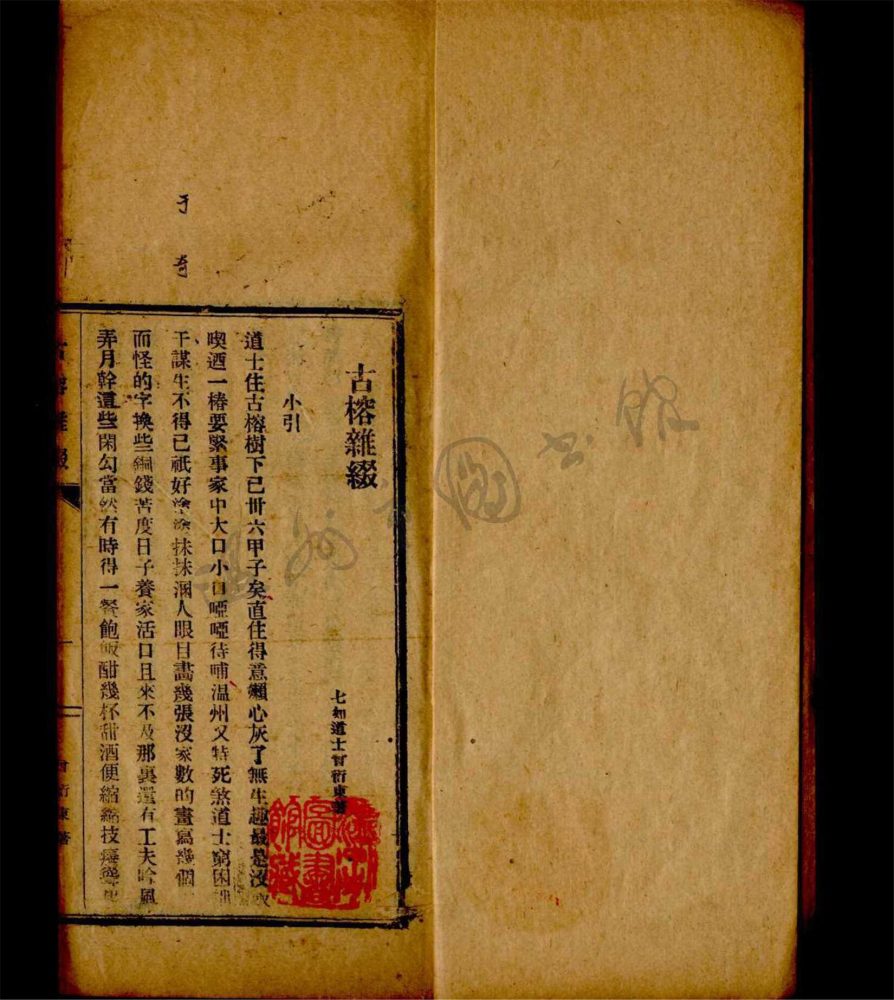 古榕雜綴
七如道士曾衍東著
小引
道士住古榕樹下已卅六甲子矣直住得意嬾心灰了無生趣最是沒
喫迺一樁要緊事家中大口小口啞啞待哺温州又特死煞道士窮困
干謀生不得已祇好塗塗抹抹溷人眼目畫幾張沒家數的畫寫幾個
而怪的字換些銅錢苦度日子養家活口且來不及那裏還有工夫吟風
弄月幹這些閑勾當然有時得一餐飽飯酣幾杯甜酒便縮縮技癢
古榕雜綴
一
曾衍東著
于奇
温州圖書館藏
温州市圖书館